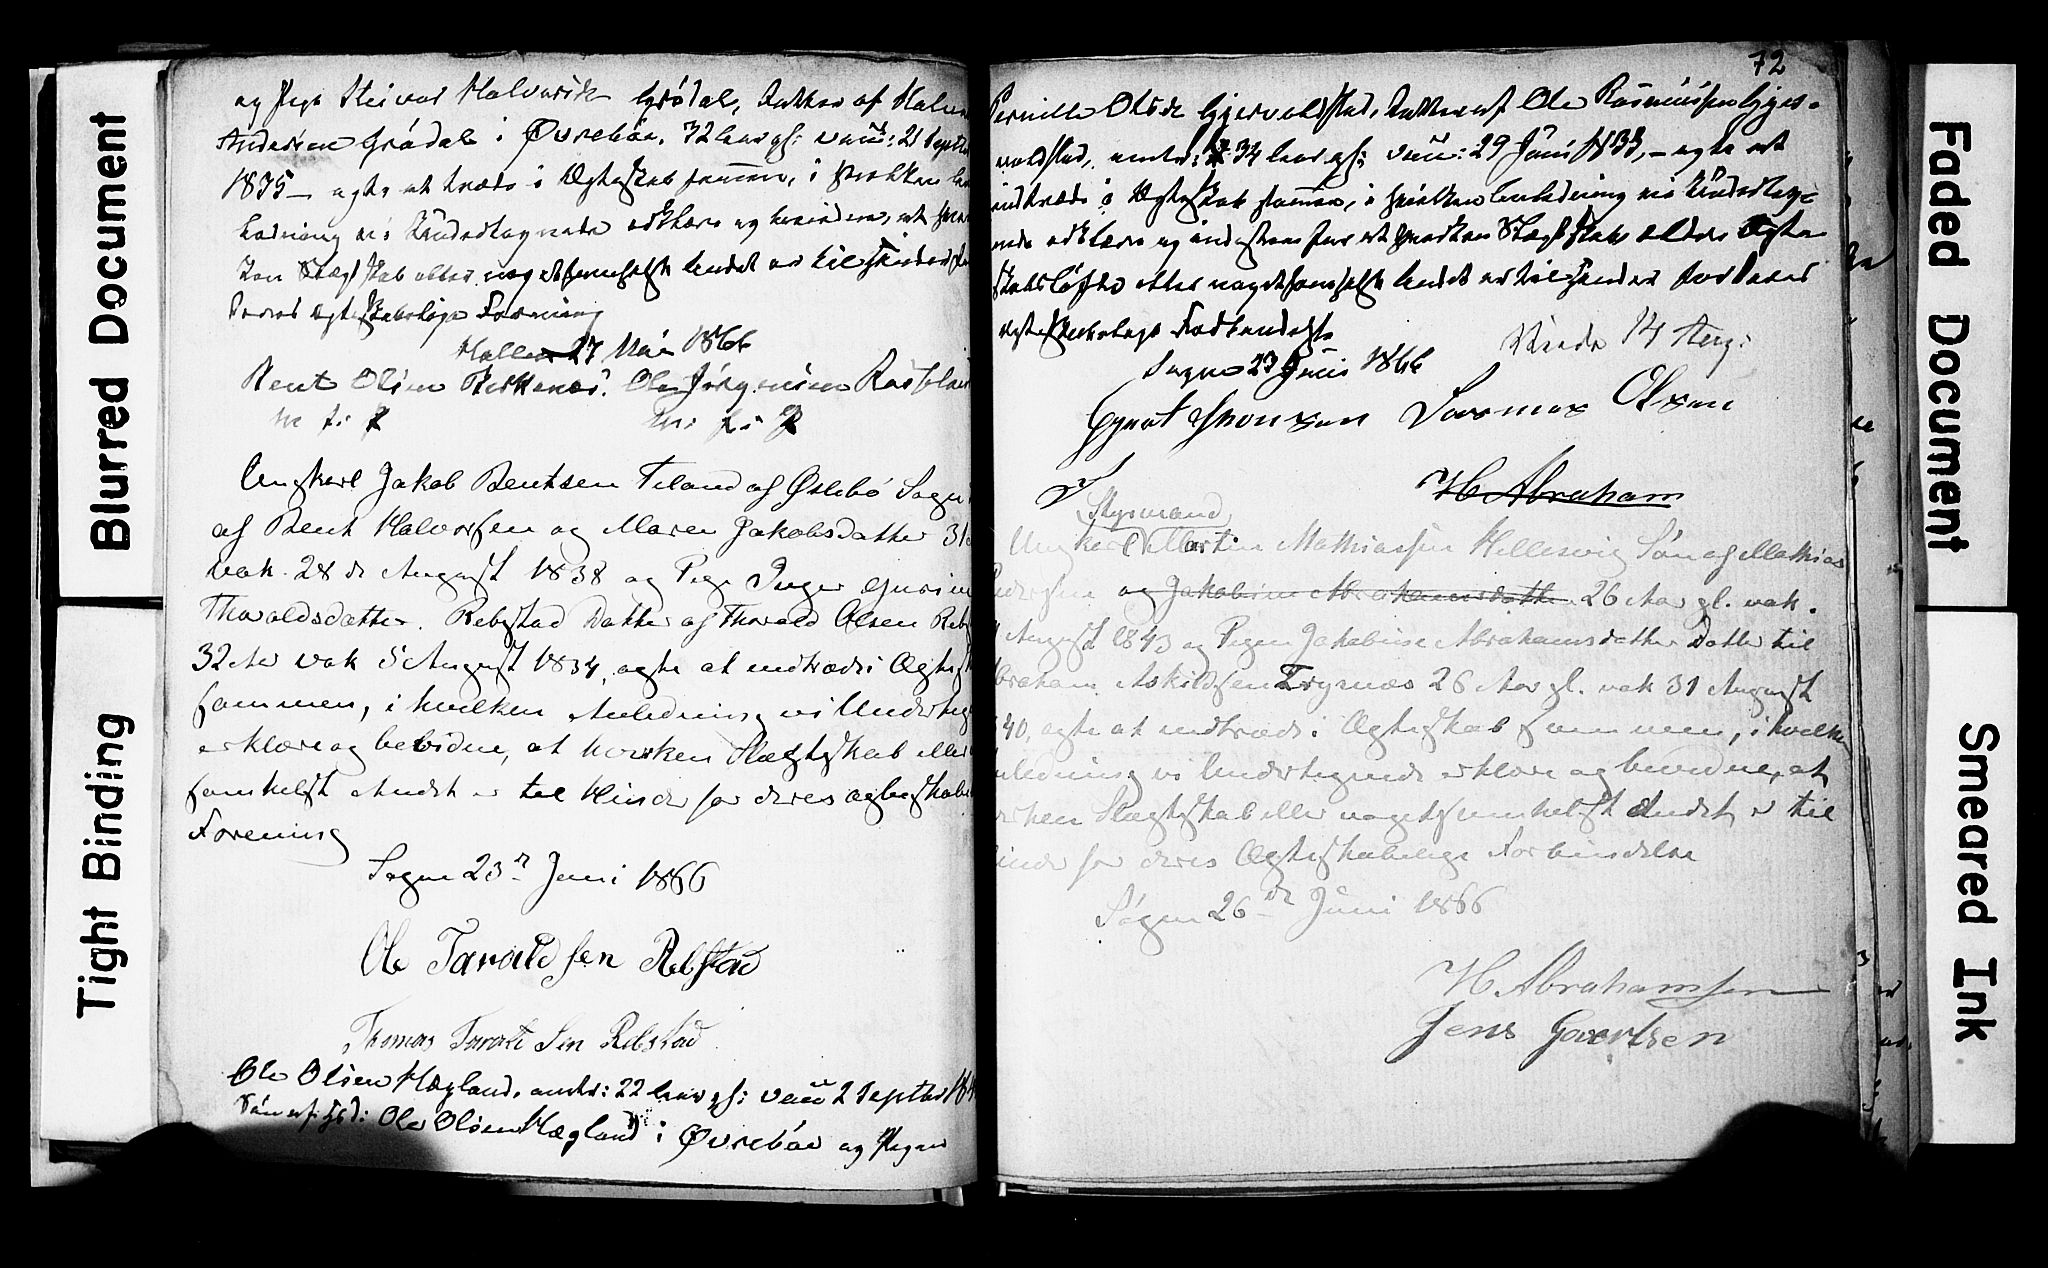 Blurred Document
Tight Binding
og Pige Halvorsdr Grødal, Datter af
Andersen Grødal i Øvrebøe, 32 Aar gl: vacc: 21 Septbr
1835 — agte at træde i Ægteskab sammen, i hvilken
ledning vi Undertegnede erklære og bevidne, at
ken Slægtskab eller noget somhelst Andet er til Hinder for
deres ægteskabelige Forening
27 Mai 1866
Bent Olsen Ole Jørgensen
Ungkarl Jakob Bentsen Filand af Øslebø Sogn
af Bent Halvorsen og Maren Jakobsdatter 31
vak. 28 de August 1838 og Pige Inger Gurine
Thoraldsdatter. Rebstad Datter af Thorald Olsen Reb
32 Aar vak 5 August 1834, agte at indtræde i Ægtesk
sammen, i hvilken Anledning vi Underteg
erklære og bevidne, at hverken Slægtskab eller
somhelst Andet er til Hinder for deres ægteskabe
Forening
Søgne 23 Juni 1866
Ole Taraldsen Rebstad
Thomas Tarald Sen Rebstad
Ole Olsen Hægland, 22 Aar gl: vacc 2 Septbr
Søn af Ole Olsen Hægland i Øvrebøe og Pigen
72
Pernille Olsdr Gjervoldstad, Datter af Ole Rasmussen Gjer-
voldstad, 34 Aar gl: vacc: 29 Juni 1833, — agte at
indtræde i Ægteskab sammen, i hvilken Anledning vi Undertegn-
ede erklære og indestaae for at hverken Slægtskab ældre Ægte
skabsløfte eller noget somhelst Andet er til Hinder for deres
ægteskabelige Forbindelse
14 Aug:
Søgne 23 Juni 1866
Olsen
H Abraham
Styrmand
Ungkarl Martin Mathiassen Hellesvig Søn af Mathias
og Jakobine Abrahamsdatter 26 Aar gl. vak.
August 1843 og Pigen Jakobine Abrahamsdatter Datter til
braham Askildsen Trysnæs 26 Aar gl. vak 31 August
40, agte at indtræde i Ægteskab sammen, i hvilken
nledning vi Undertegnede erklære og bevidne, at
erken Slægtskab eller noget somhelst Andet er til
inder for deres Ægteskabelige Forbindelse
Søgne 26 de Juni 1866
H Abrahamsen
Jens Govertsen
Faded Document
Smeared Ink